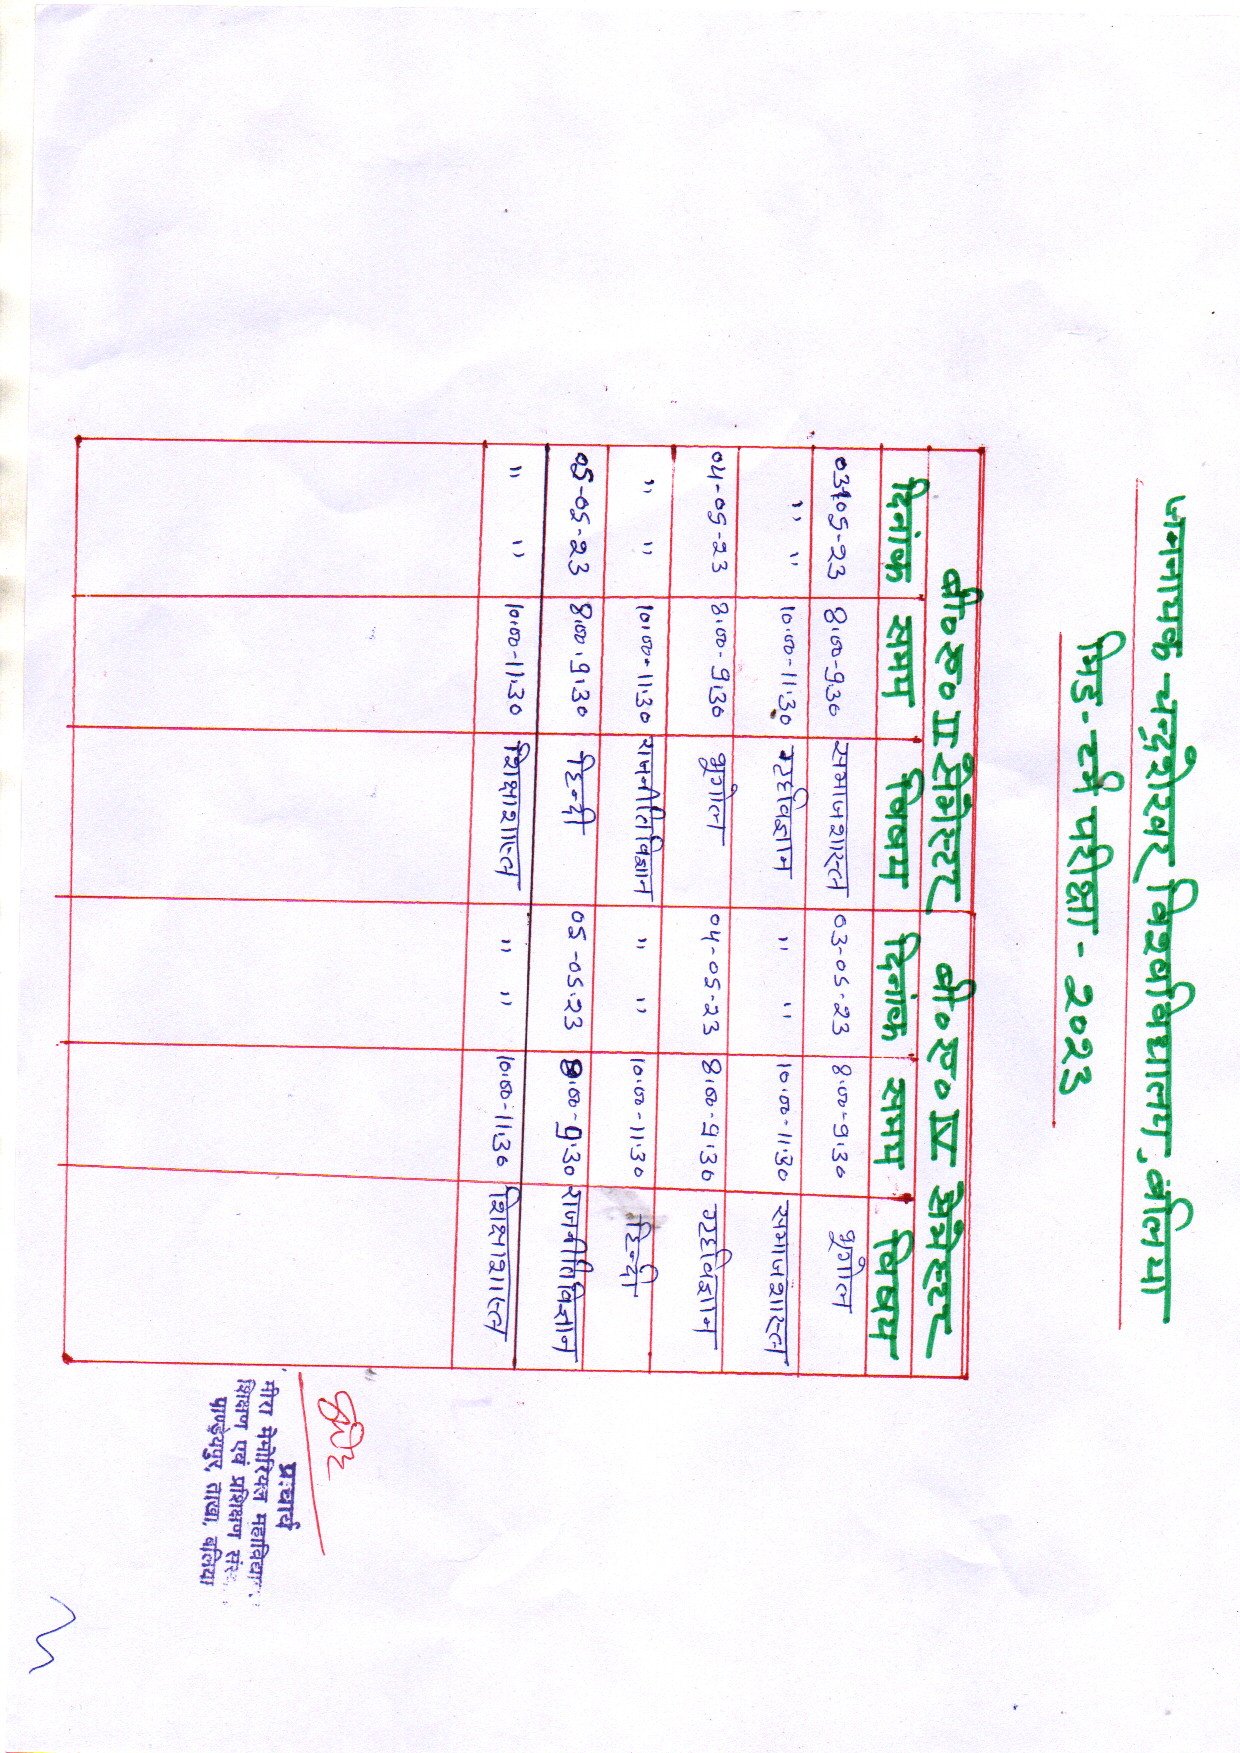 जननायक चन्द्रशेखर विश्वविद्यालय, बलिया
मिड-टर्म परीक्षा - 2023
बी० ए० II सेमेस्टर बी० ए० IV सेमेस्टर
दिनांक समय विषय दिनांक समय विषय
03-05-23 8:00-9:30 समाजशास्त्र 03-05-23 8:00-9:30 भूगोल
" " 10:00-11:30 गृहविज्ञान " " 10:00-11:30 समाजशास्त्र
04-05-23 8:00-9:30 भूगोल 04-05-23 8:00-9:30 गृहविज्ञान
" " 10:00-11:30 राजनीति विज्ञान " " 10:00-11:30 हिन्दी
05-05-23 8:00-9:30 हिन्दी 05-05-23 8:00-9:30 राजनीति विज्ञान
" " 10:00-11:30 शिक्षाशास्त्र " " 10:00-11:30 शिक्षाशास्त्र
प्राचार्य
मीरा मेमोरियल महाविद्या
शिक्षण एवं प्रशिक्षण सं
पाण्डेयपुर, ताखा, बलिया